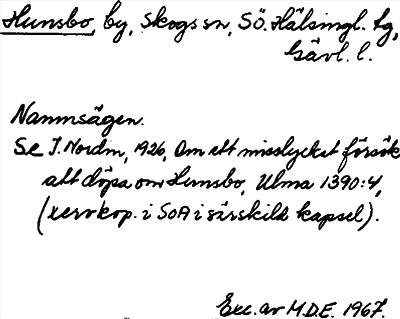 Hunsbo, by, Skogs sn, SÖ. Hälsingl. tg,
Gävl. l.
Namnsägen.
Se J. Nordin, 1926, Om ett misslyckat försök
att döpa om Hunsbo, Ulma 1390:4,
(xeroxkop. i SOA i särskild kapsel).
Exc. av M.D.E. 1967.